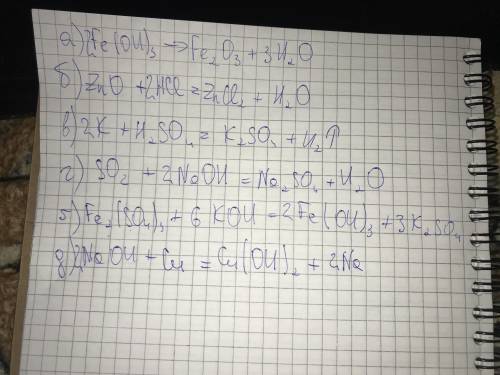 а) 2Fe(OH)₃ → Fe₂O₃ + 3H₂O
б) ZnO + 2HCl = ZnCl₂ + H₂O
в) 2K + H₂SO₄ = K₂SO₄ + H₂↑
г) SO₂ + 2NaOH = Na₂SO₄ + H₂O
б) Fe₂(SO₄)₃ + 6KOH = 2Fe(OH)₃ + 3K₂SO₄
д) 2NaOH + Cu = Cu(OH)₂ + 2Na